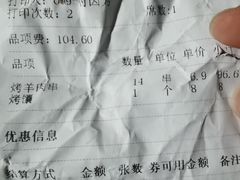 打印次数：2
席数：1
品项费：104.60
品项 数量 单位 单价 小
烤羊肉串 14 串 6.9 96.6
烤馕 1 个 8 8
优惠信息
金额 张数 券可用金额 备注